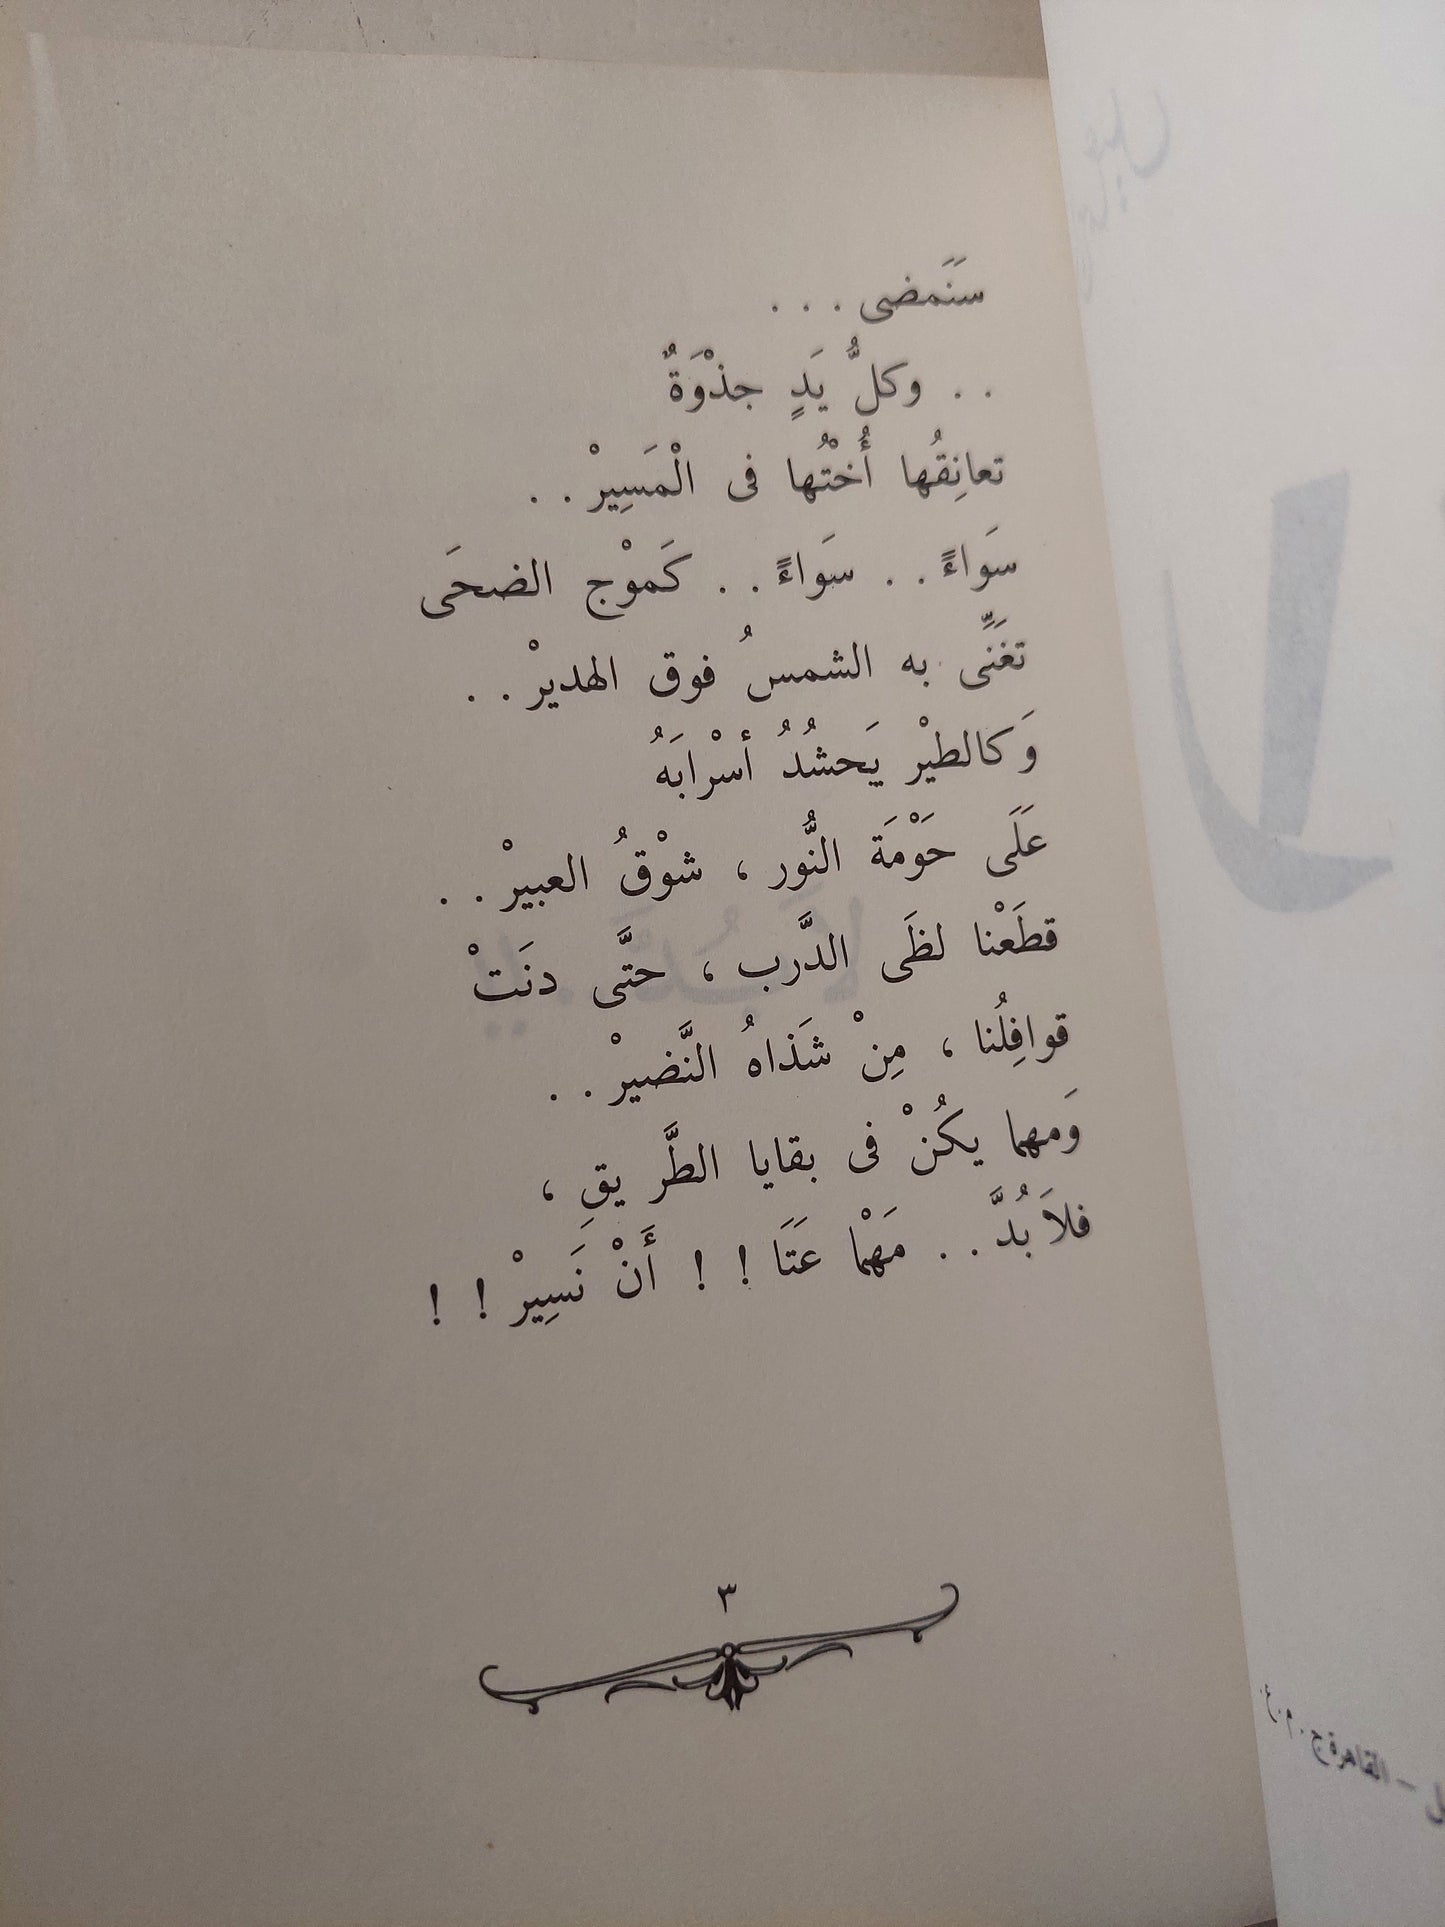 سَنَمضى . . .
. . وكلُّ يَدٍ جذْوَةٌ
تعانِقُها أُخْتُها فى الْمَسِيرْ . .
سَواءً . . سَواءً . . كَموْج الضحَى
تغَنِّى به الشمسُ فوق الهديرْ . .
وَكالطيْر يَحشُدُ أسْرابَهُ
عَلَى حَوْمَة النُّور ، شوْقُ العبيرْ . .
قطَعْنا لظَى الدَّرب ، حتَّى دنَتْ
قوافِلُنا ، مِنْ شَذاهُ النَّضيرْ . .
وَمهما يكُنْ فى بقايا الطَّريقِ ،
فلاَ بُدَّ . . مَهْما عَتَا ! ! أَنْ نَسِيرْ ! !
٣